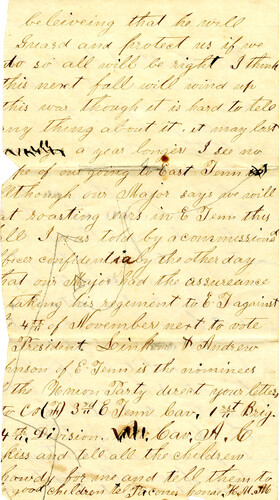 beleiveing that he will
Guard and protect us if we
do so all will be right I think
this next fall will wind up
this war though it is hard to tell
any thing about it. it may last
a year longer I see no
pe of our going to East Tenn
lthough our Major says we will
at roasting ears in E Tenn this
ll I was told by a commission
fficer confidentialy the other day
that our Major had the assureance
taking his regiment to E T against
4th of November next to vote
President Linkon & Andrew
hnson of E Tenn is the nominees
the Union Party direct your letters
to Co (A) 3rd E Tenn Cav, 1st Brig
4th Division. Cav, A, C
Kiss and tell all the childrew
howdy for me and tell them to
good children &c